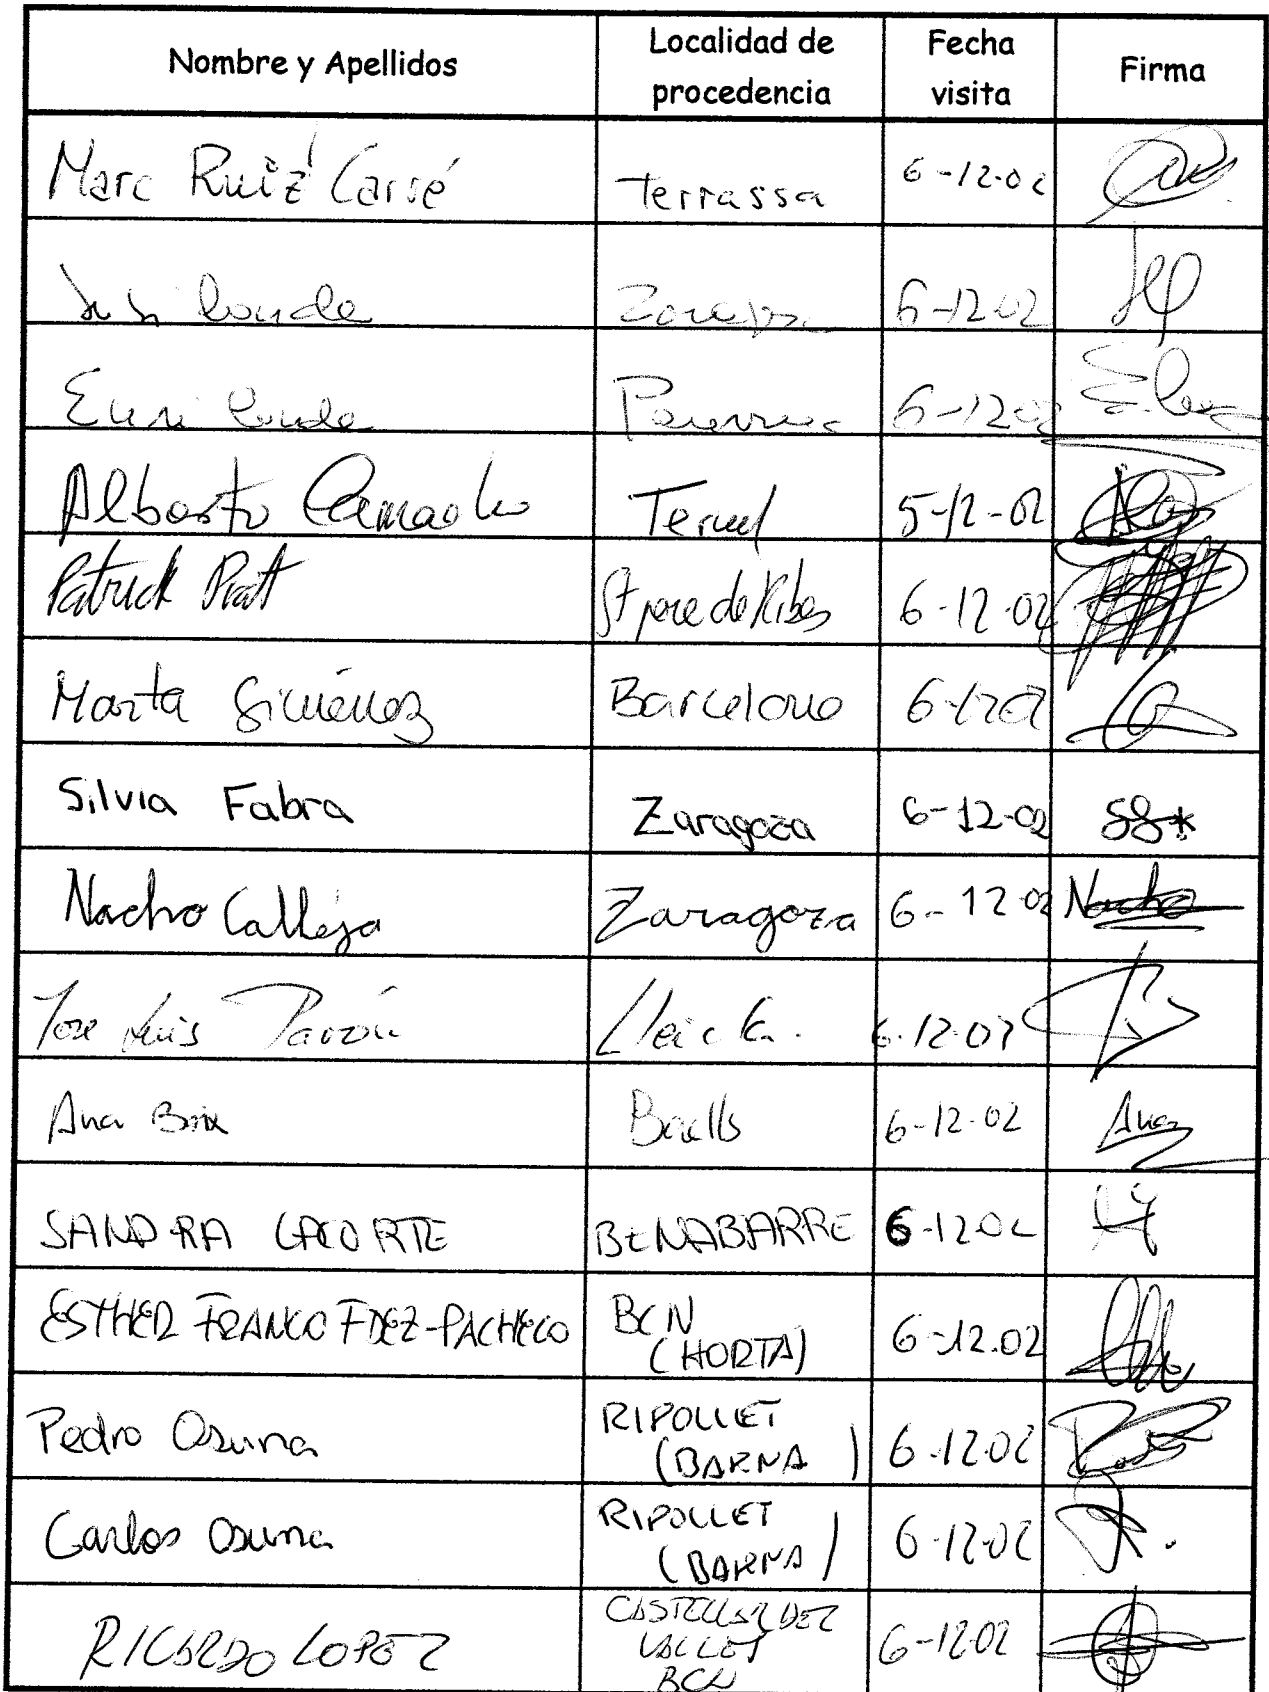 Nombre y Apellidos
Localidad de
procedencia
Fecha
visita
Firma
Marc Ruiz Carré Terrassa 6-12-02
Conde 6-12-02
Conde 6-12-02
Alberto Camacho Teruel 5-12-02
Patrick Pratt St pere de Ribes 6-12-02
Marta Giménez Barcelona 6-12-02
Silvia Fabra Zaragoza 6-12-02 SS*
Nacho Calleja Zaragoza 6-12-02 Nacho
Jose Luis Pavón 6.12.02
Ana Baells 6-12-02 Ana
SANDRA LACORTE BENABARRE 6-12-02
ESTHER FRANCO FDEZ-PACHECO BCN
(HORTA) 6-12.02
Pedro Osuna RIPOLLET
(BARNA) 6-12-02
Carlos Osuna RIPOLLET
(BARNA) 6-12-02
RICARDO LOPEZ CASTELLAR DEL
VALLET
BCN 6-12-02